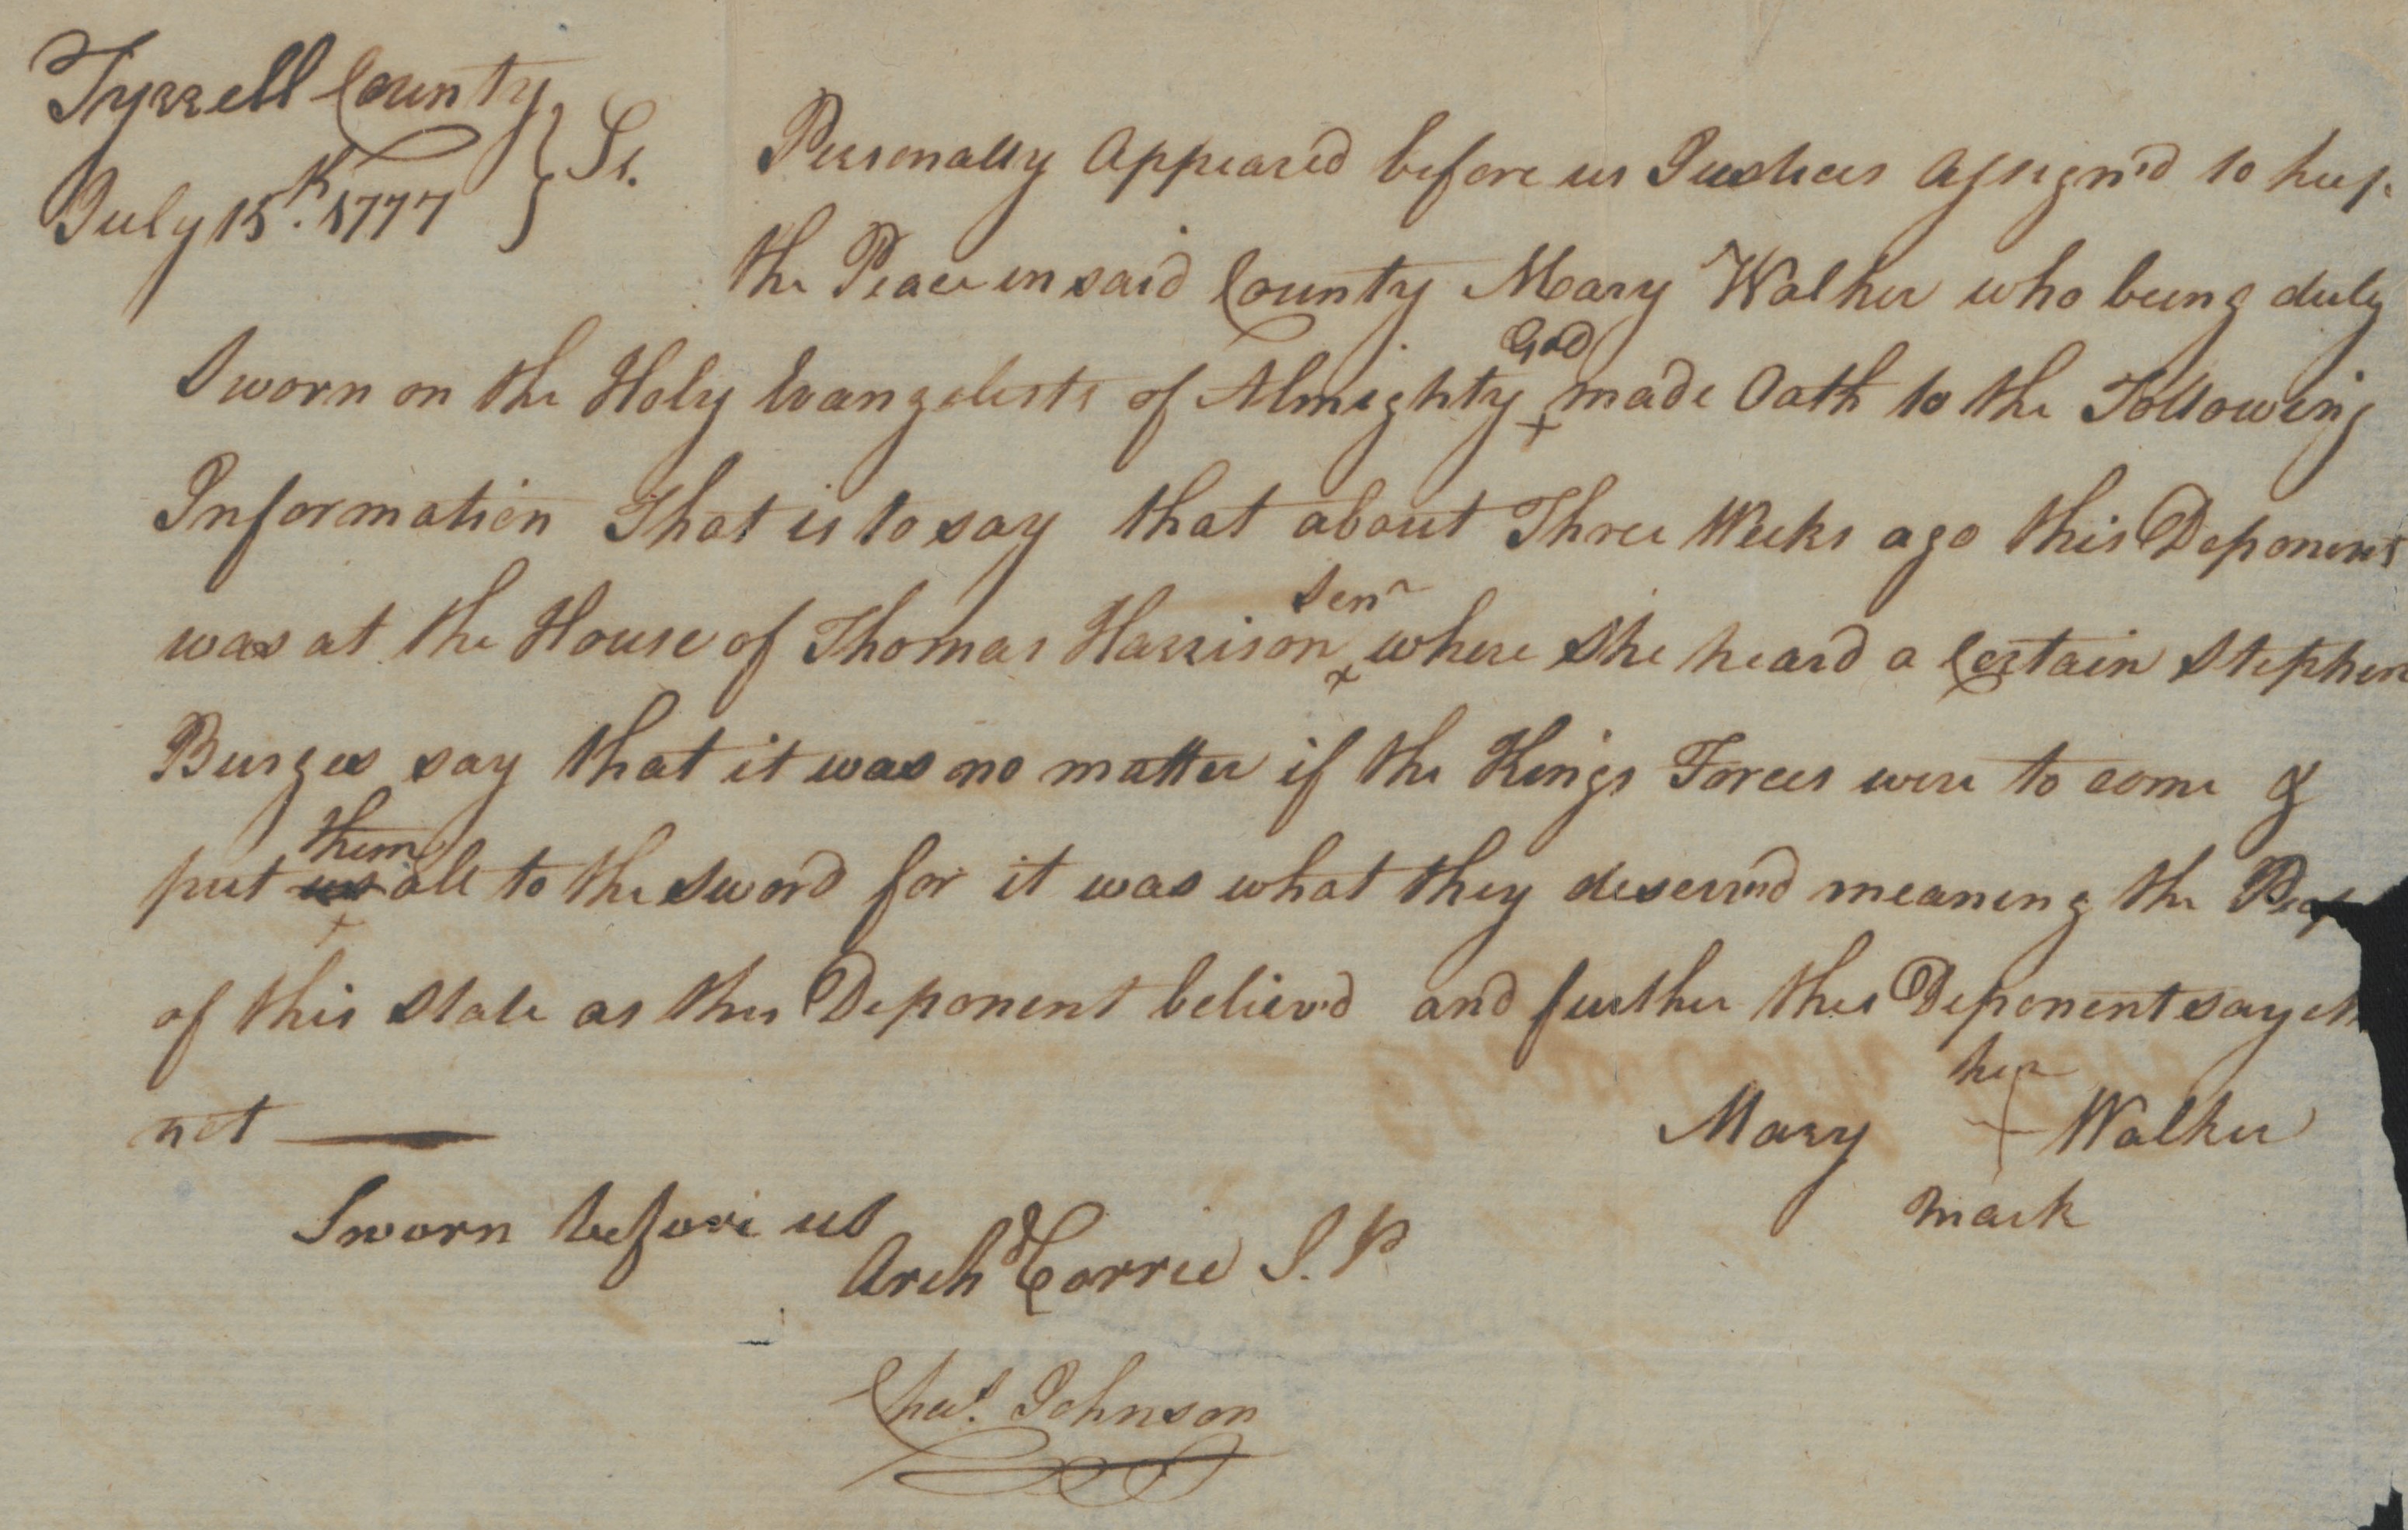 Tyrrell County } Ss.
July 15th. 1777
Personally Appeared before us Justices Assign'd to keep
the Peace in said County Mary Walker who being duly
Sworn on the Holy Evangelists of Almighty God made Oath to the Following
Information That is to say that about Three Weeks ago this Deponent
was at the House of Thomas Harrison Senr where she heard a Certain Stephen
Burges say that it was no matter if the Kings Forces were to come &
put us them all to the sword for it was what they deserv'd meaning the Peop
of this State as this Deponent believ'd and further this Deponent sayeth
not
her
Mary + Walker
mark
Sworn before us
Archd Corrie J. P
Chas. Johnson